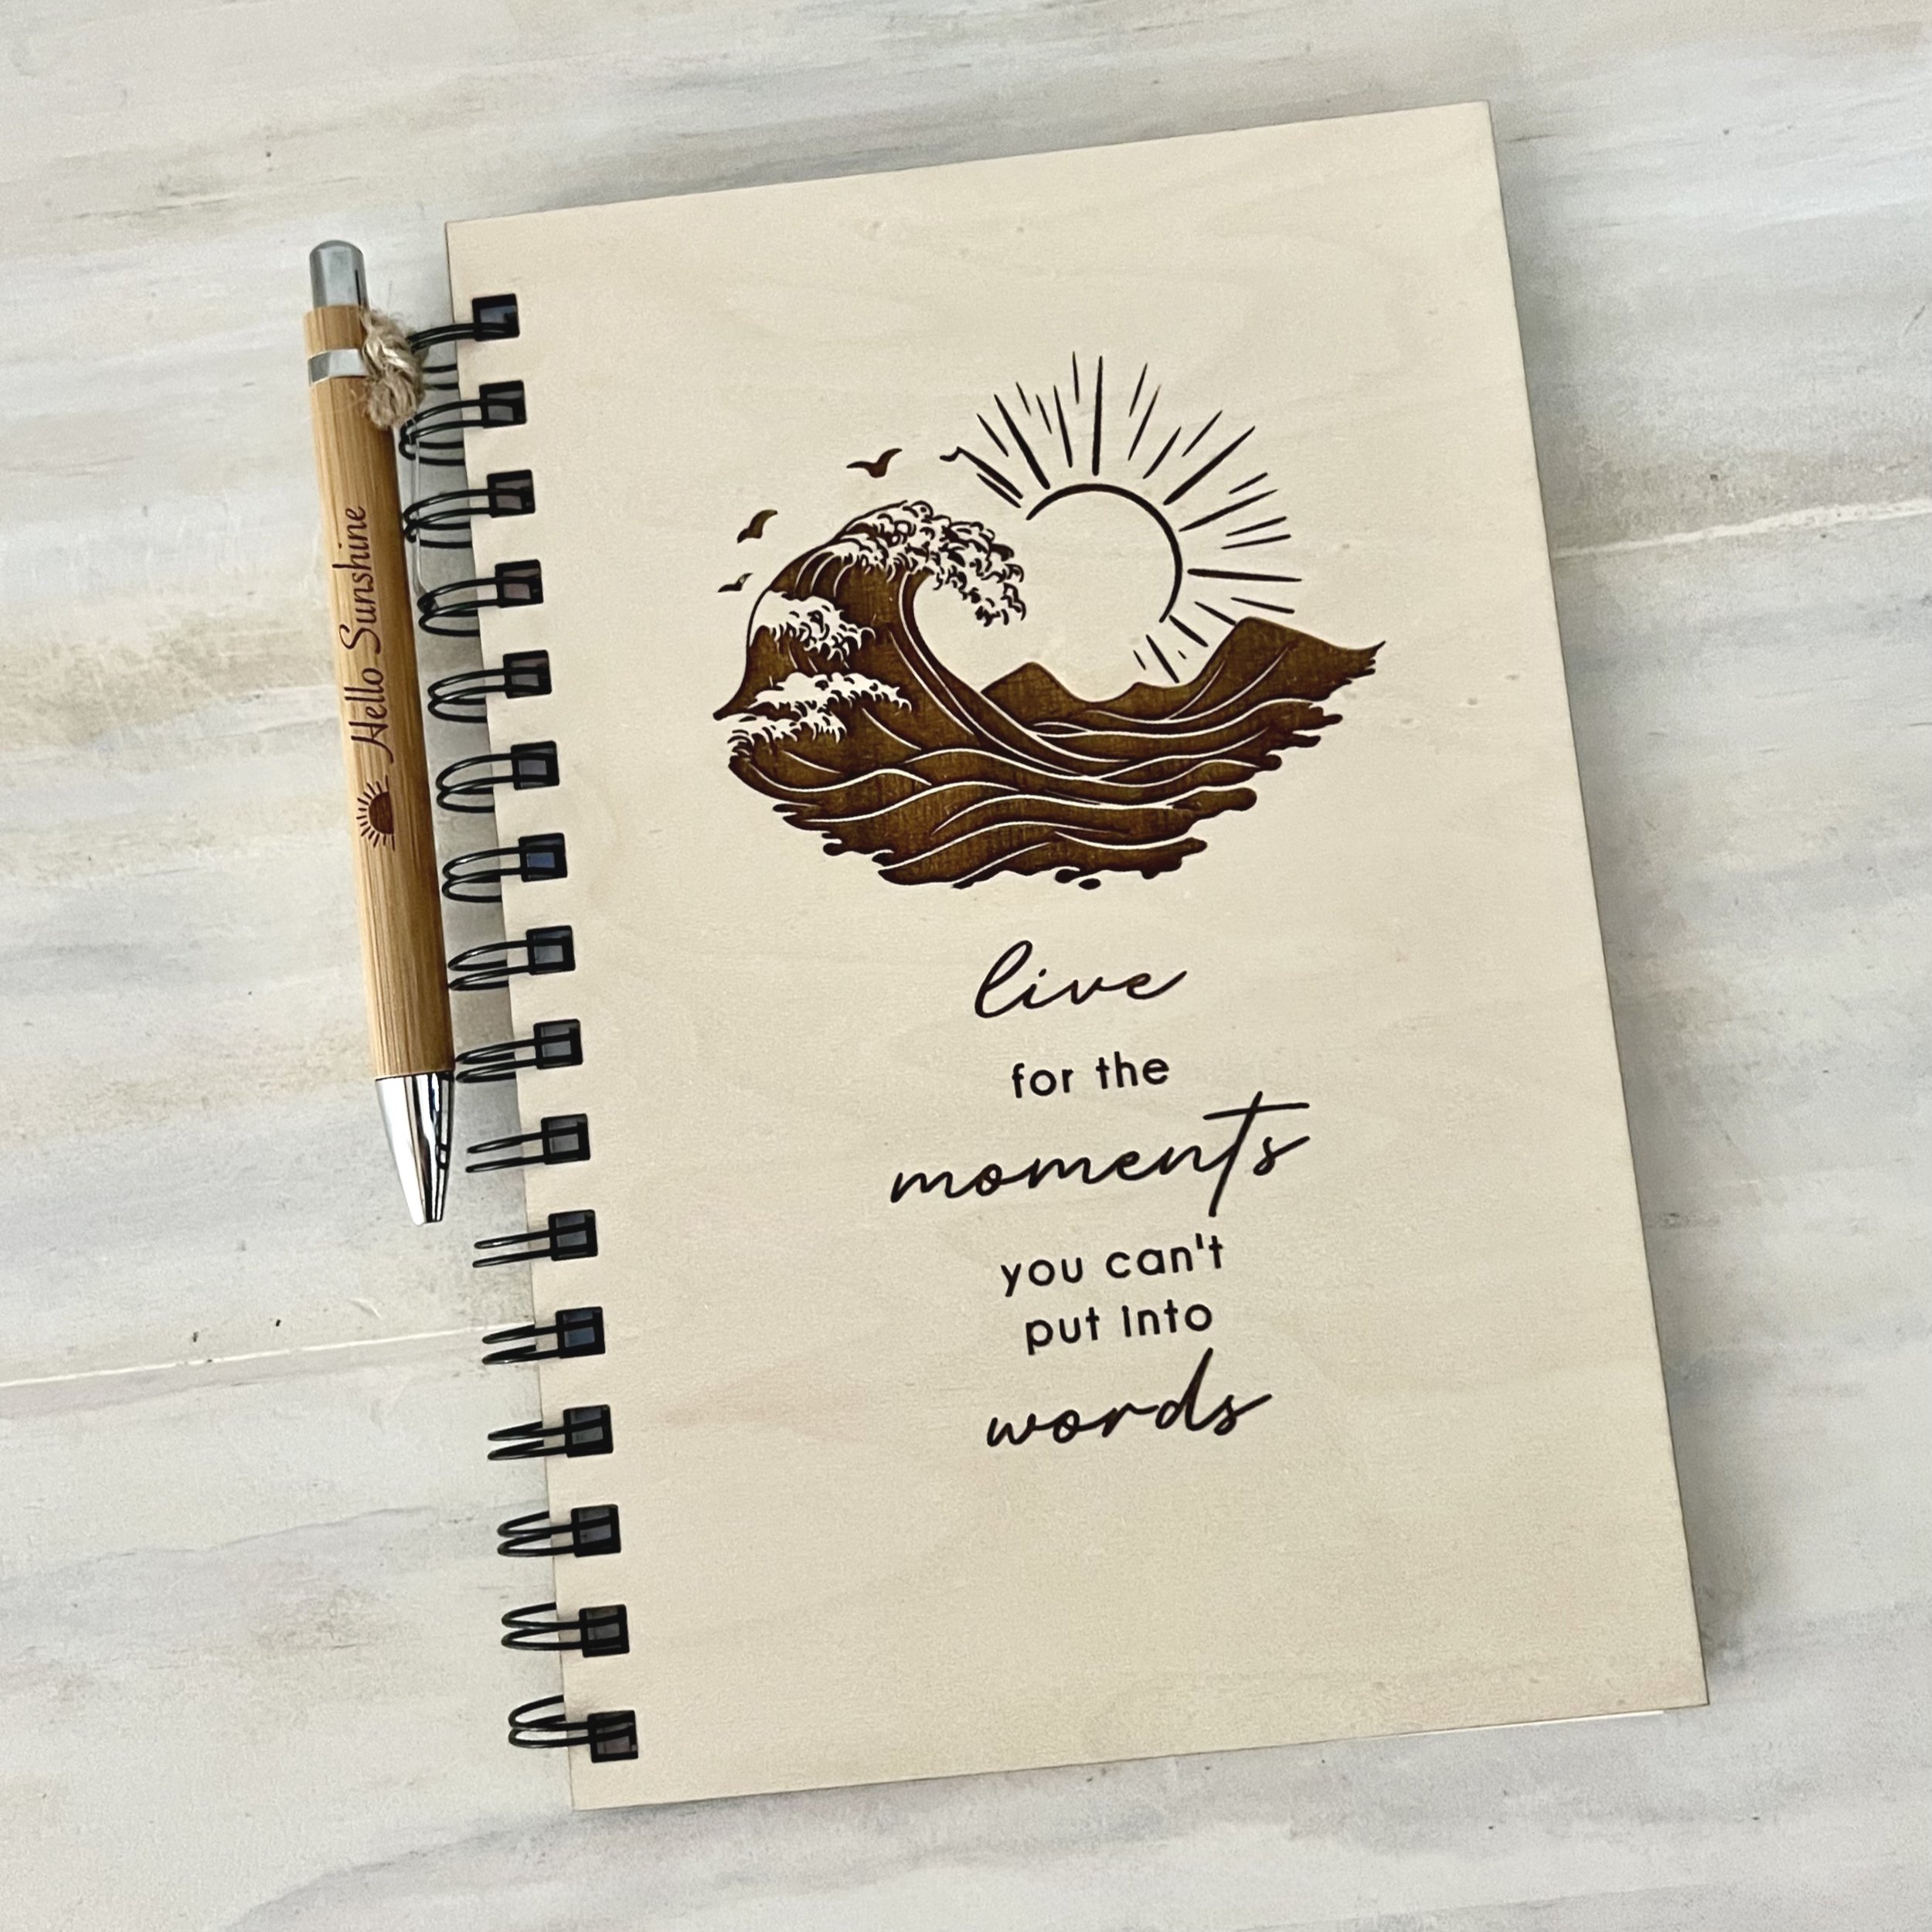 Hello Sunshine
live
for the
moments
you can't
put into
words